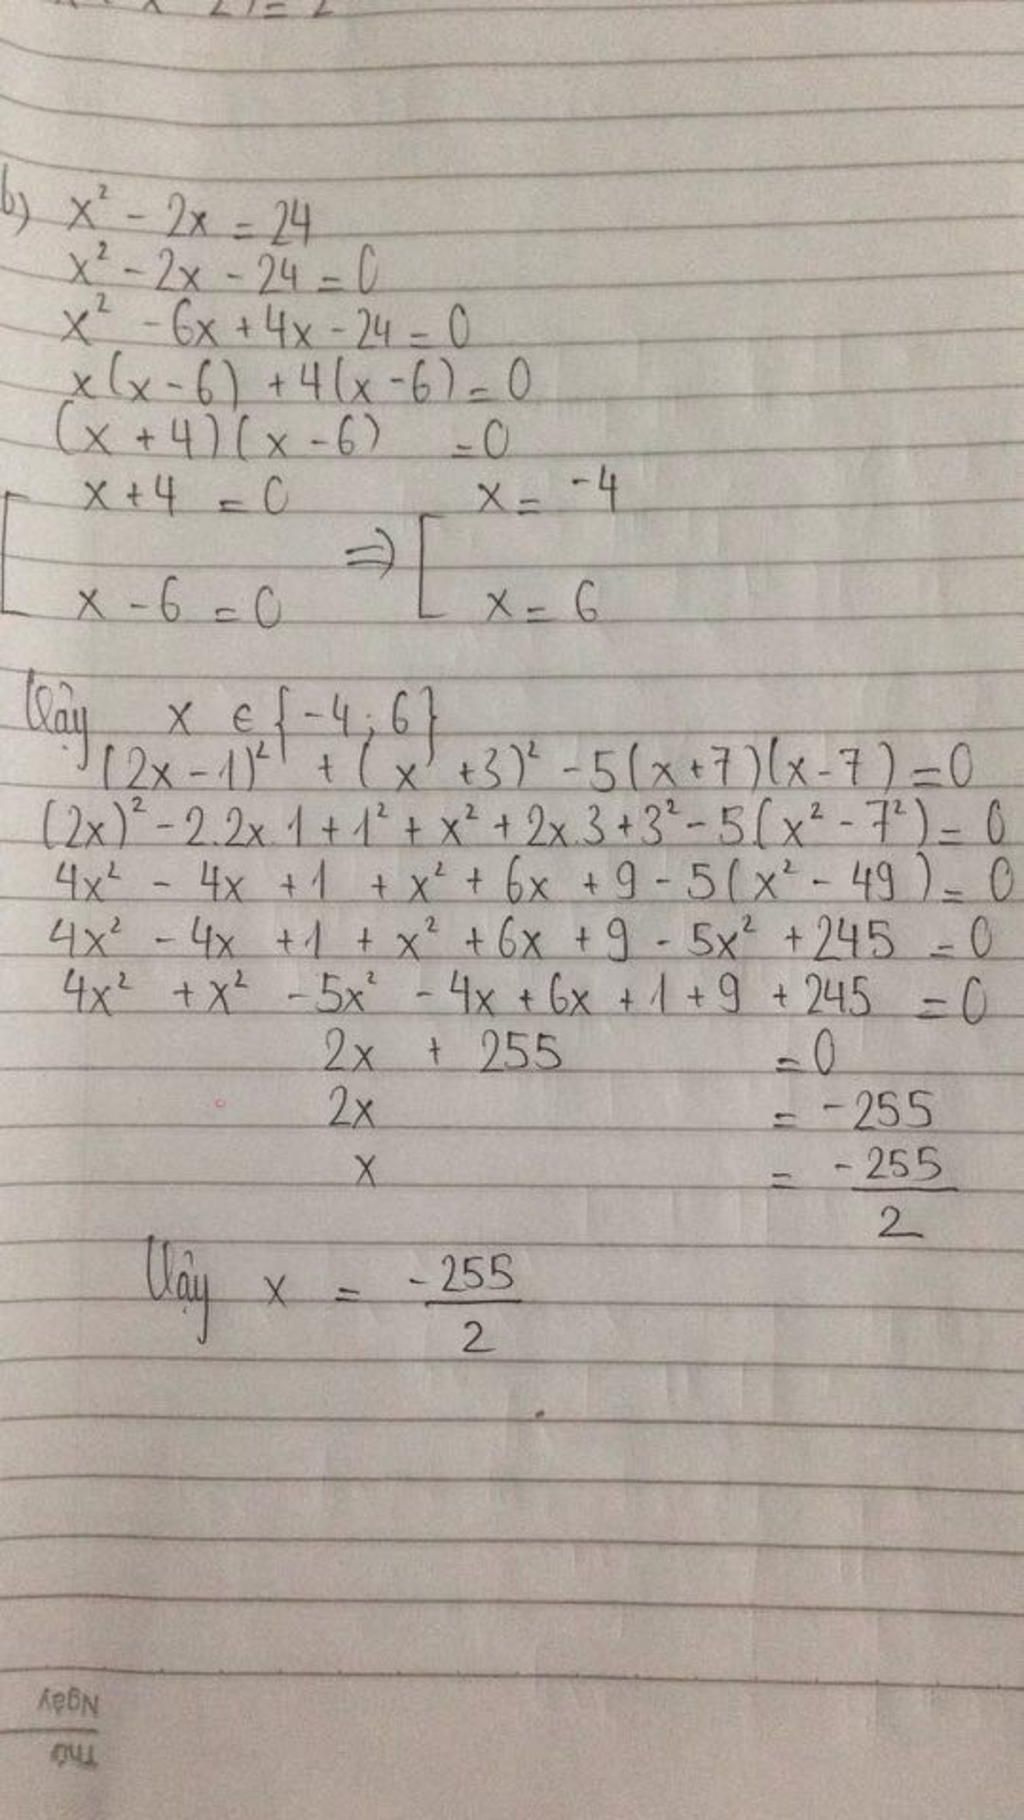 b) x² - 2x = 24
x² - 2x - 24 = 0
x² - 6x + 4x - 24 = 0
x(x - 6) + 4(x - 6) = 0
(x + 4)(x - 6) = 0
[ x + 4 = 0 => [ x = -4
x - 6 = 0 x = 6
Vậy x ∈ {-4; 6}
(2x - 1)² + (x + 3)² - 5(x + 7)(x - 7) = 0
(2x)² - 2.2x.1 + 1² + x² + 2x.3 + 3² - 5(x² - 7²) = 0
4x² - 4x + 1 + x² + 6x + 9 - 5(x² - 49) = 0
4x² - 4x + 1 + x² + 6x + 9 - 5x² + 245 = 0
4x² + x² - 5x² - 4x + 6x + 1 + 9 + 245 = 0
2x + 255 = 0
2x = -255
x = -255/2
Vậy x = -255/2
Ngày
Thứ